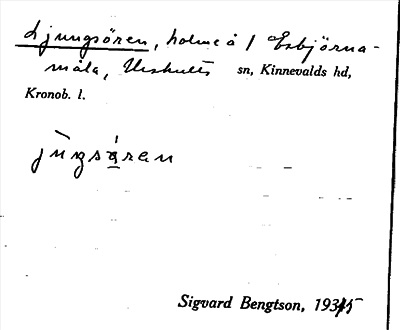 Ljungsören, holme å / Esbjörna-
måla, Urshults sn, Kinnevalds hd,
Kronob. l.
jùŋsáran
Sigvard Bengtson, 1935